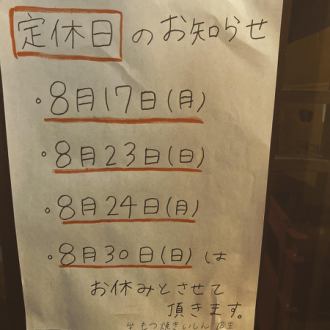 定休日のお知らせ
・8月17日(月)
・8月23日(日)
・8月24日(月)
・8月30日(日)は
お休みとさせて
頂きます。
もつ焼きいしん